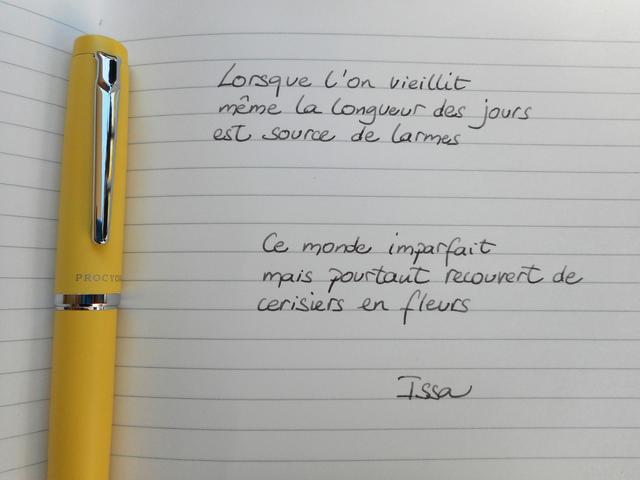 Lorsque l'on vieillit
même la longueur des jours
est source de larmes
Ce monde imparfait
mais pourtant recouvert de
cerisiers en fleurs
Issa
PROCYON